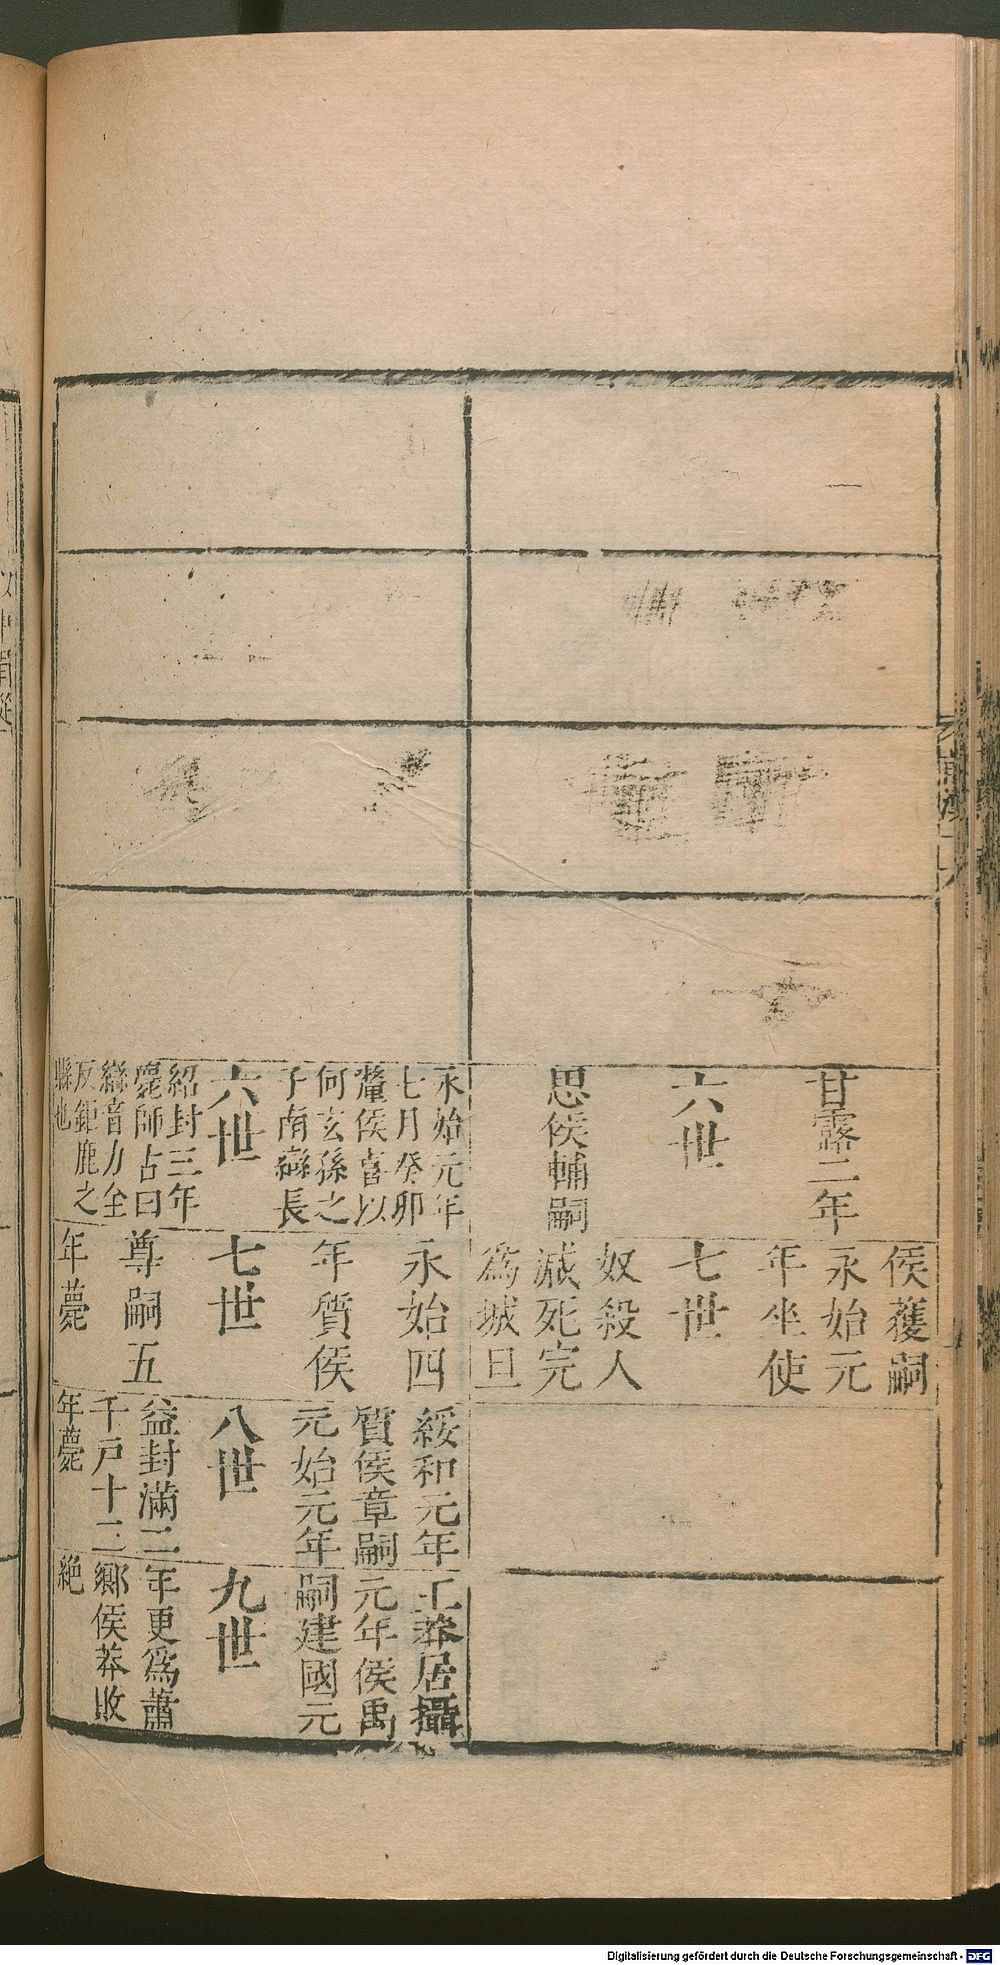 甘露二年
六世
思侯輔嗣
侯蒦嗣
永始元
年坐使
七世
奴殺人
減死完
為城旦
永始元年
七月癸卯
釐侯喜以
何玄孫之
子南䜌長
六世
紹封三年
薨師古曰
䜌音力全
反鉅鹿之
縣也
永始四
年質侯
七世
尊嗣五
年薨
綏和元年
質侯章嗣
元始元年
八世
益封滿二
千戸十二
年薨
王莽居攝
元年侯禹
嗣建國元
九世
年更爲蕭
鄉侯莽敗
絶
Digitalisierung gefördert durch die Deutsche Forschungsgemeinschaft - DFG